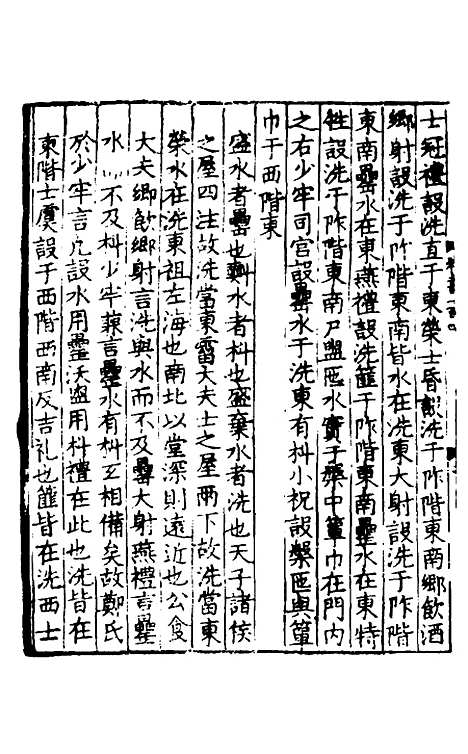 士冠禮設洗直于東榮士昏設洗于阼階東南鄉飲酒
鄉射設洗于阼階東南皆水在洗東大射設洗于阼階
東南罍水在東燕禮設洗篚于阼階東南罍水在東特
牲設洗于阼階東南尸盥匜水實于槃中簞巾在門內
之右少牢司宮設罍水于洗東有枓小祝設槃匜與簞
巾于西階東
盛水者罍也㪺水者枓也盛棄水者洗也天子諸侯
之屋四注故洗當東霤大夫士之屋兩下故洗當東
榮水在洗東祖左海也南北以堂深則遠近也公食
大夫鄉飲鄉射言洗與水而不及罍大射燕禮言罍
水而不及枓少牢蒹言罍水有枓互相備矣故鄭氏
於少牢言凡設水用罍沃盥用枓禮在此也洗皆在
東階士虞設于西階西南反吉礼也篚皆在洗西士